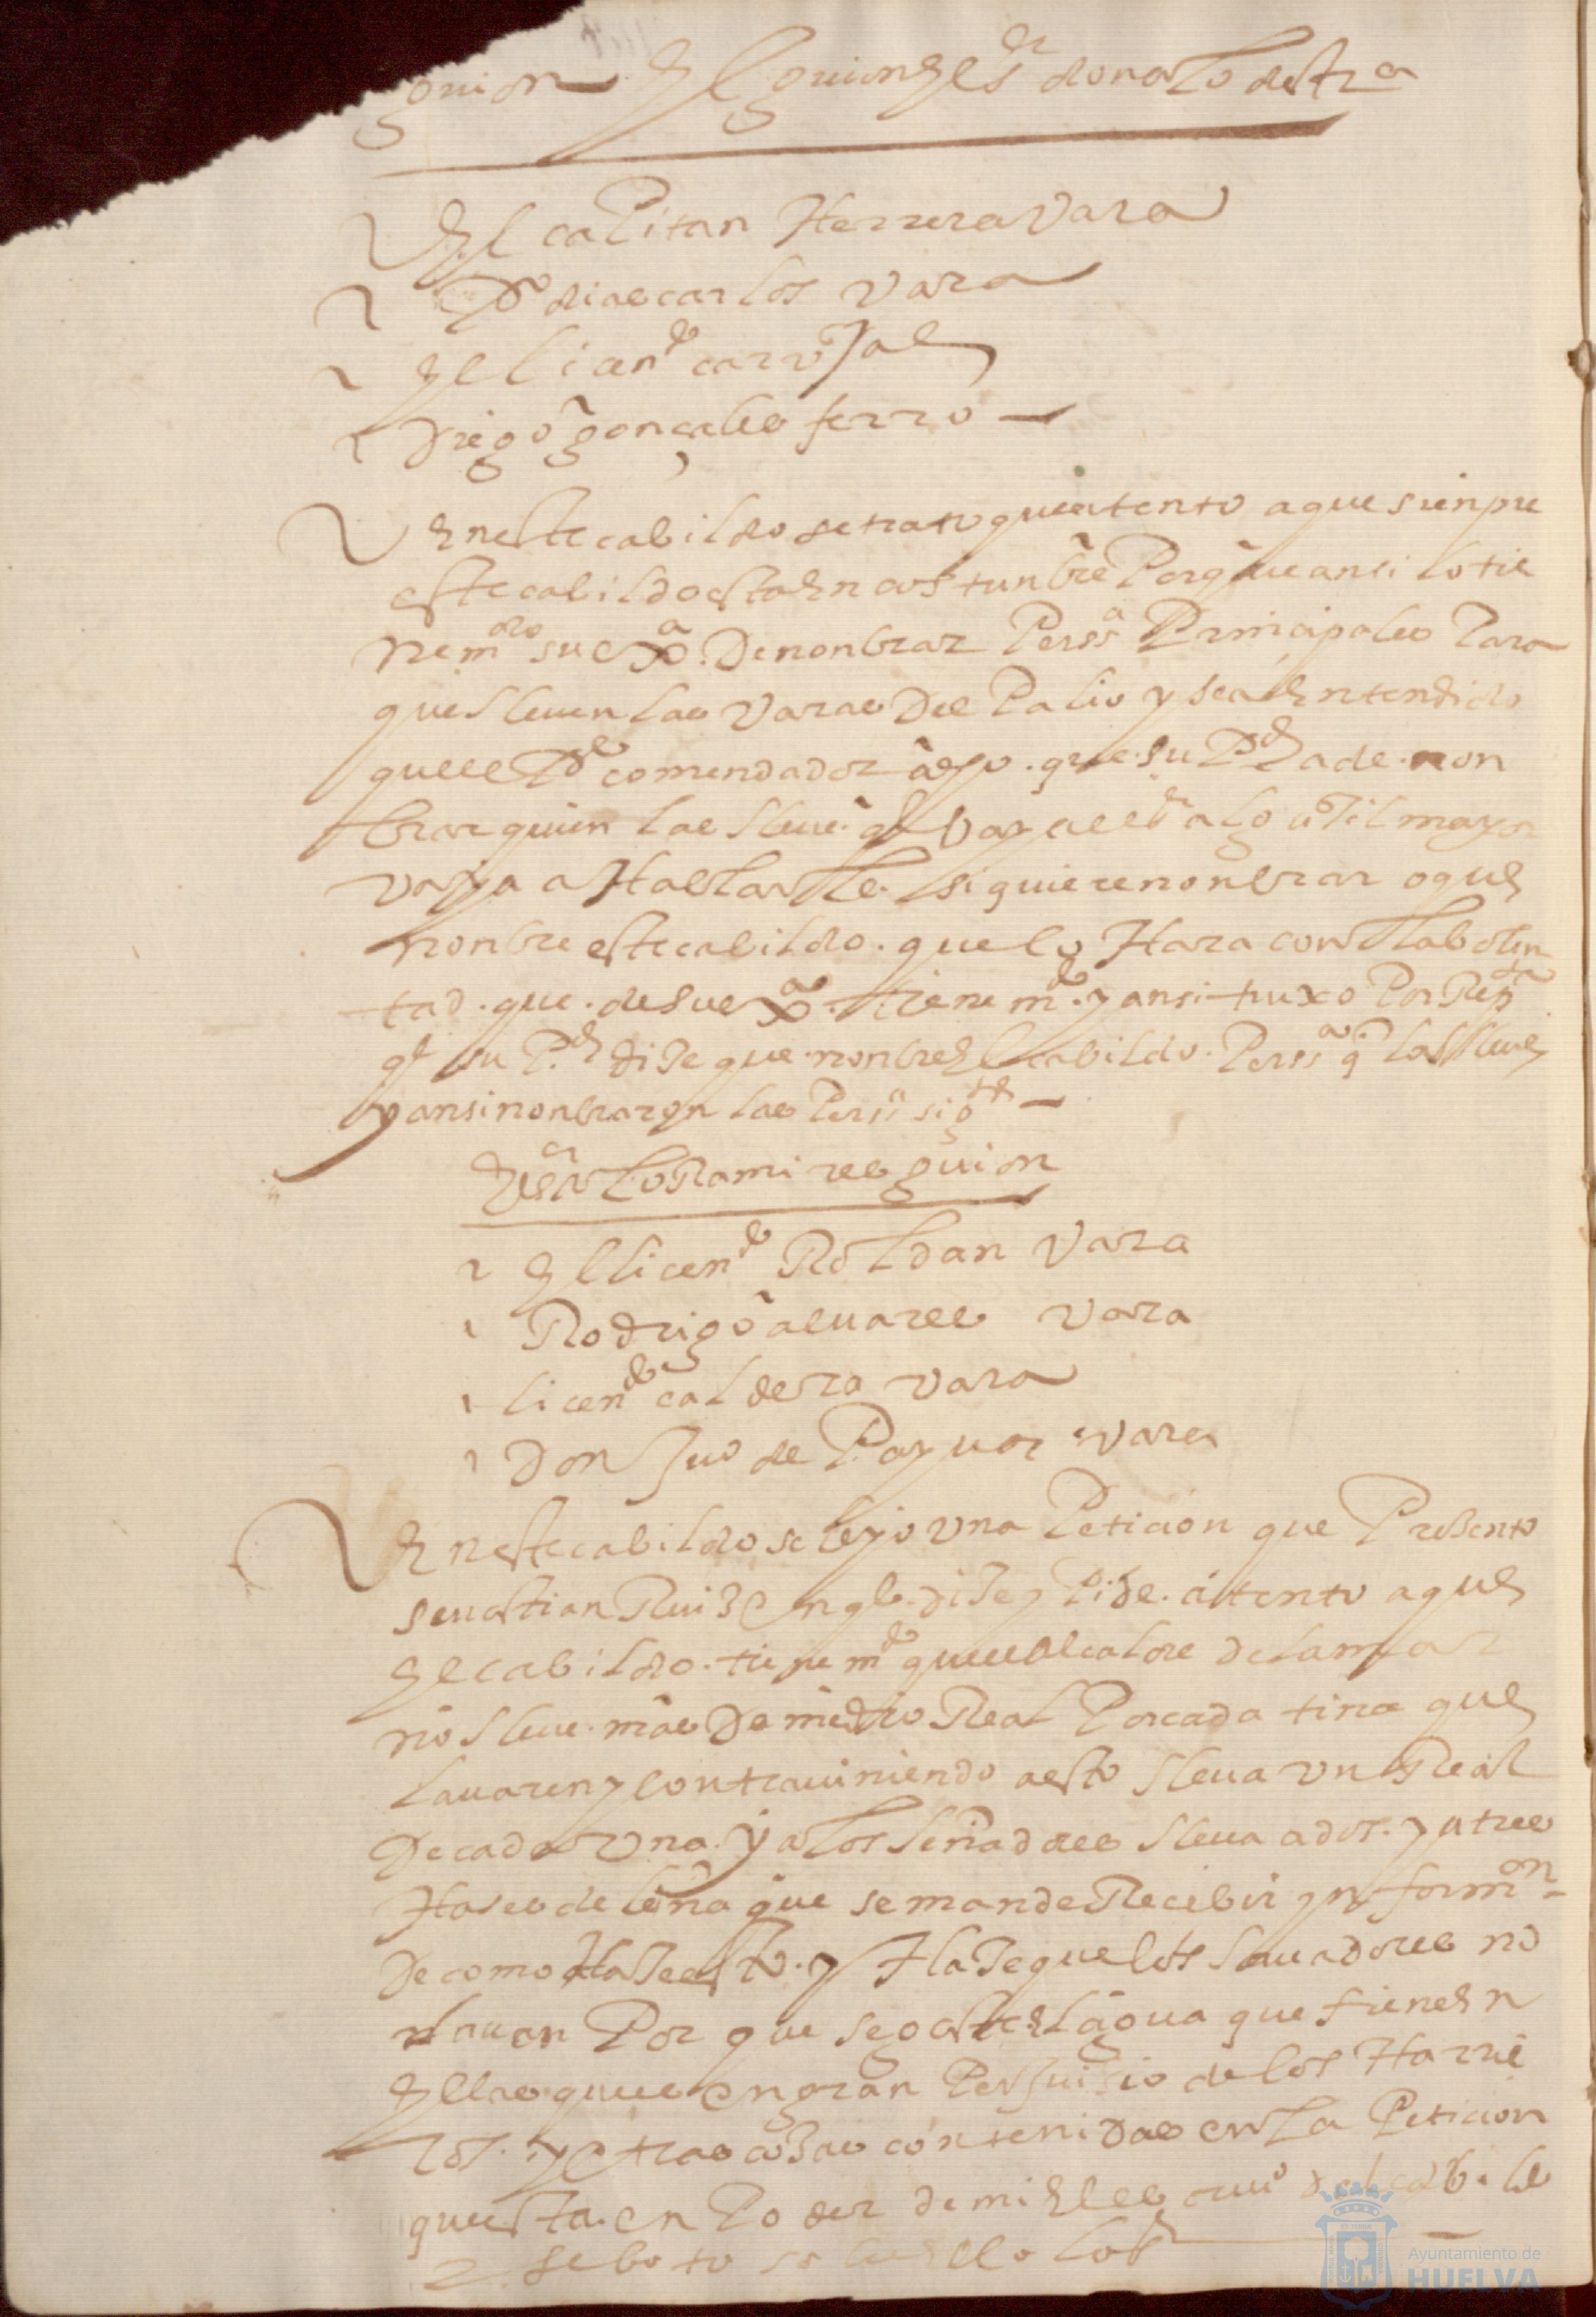 guion El guion El sr donalo desta
El capitan Herrera vara
Po dias carlos vara
El licendo carvJal
Diego gonçales ferro
En este cabildo se trato que atento a que sienpre
este cabildo esta En costunbre Porque ansi lo tie
ne mdo su exa. De nonbrar Perssas Principales Para
que lleuen las varas Del Palio y sea Entendido
que el Pe comendador que su Pd a de non
brar quien las lleue q vaya el sr alguaJil mayor
vaya a Hablarle si quiere nonbrar o que
nonbre este cabildo. que lo Hara con la bolun
tad. que. de su exa. tiene mdo. y ansi truxo Por Repta
q su Pd diJe que nonbre El cabildo. Perssas q las lleue
y ansi nonbraron las Perss sigtes
El sr Ramires guion
El licendo Roldan vara
Rodrigo aluares vara
licendo caldera vara
Don Juo de Payua vara
En este cabildo se leyo vna Peticion que Presento
seuastian Ruis en q diJe y Pide. atento a que
El cabildo. tiene mdo que el Alcalde De la mar
no lleue. mas De medio Real Por cada tina que
lauaren y contrauiniendo a esto lleua vn Real
De cada vna. y a los leñadores lleua a dos. y a tres
Hases de leña que se mande Recibir ynformon
De como HaJe esto. y HaJe que los lauadores no
lauan Por que se gaste El agua que tienen En
Ellas que es en gran PerJuisio de los Harrie
ros. y otras cosas contenidas en la Peticion
questa. en Poder de mi El esscriuo del cabildo
se boto so
Ayuntamiento de
HUELVA